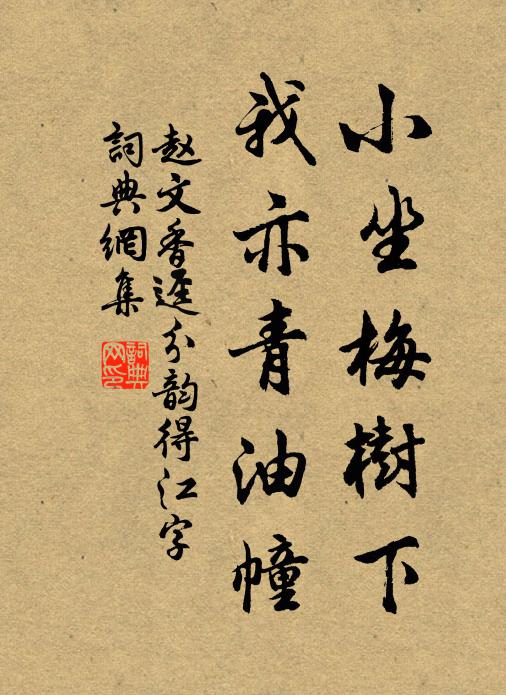 小坐梅樹下
我亦青油幢
赵文香遅分韵得江字
詞典網集
詞典网印